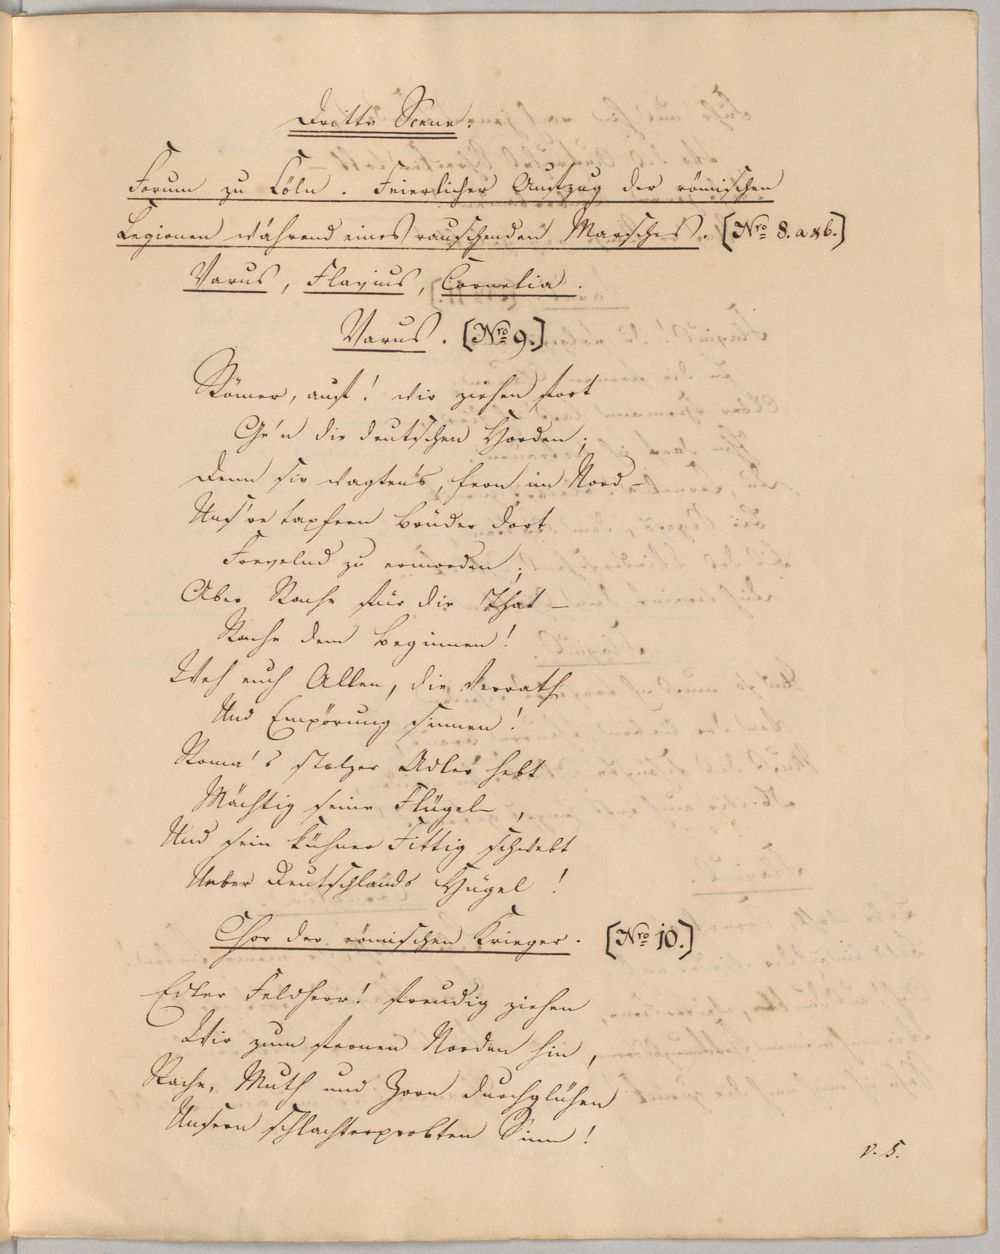 Dritte Scene.
Forum zu Cöln. Feierlicher Aufzug der römischen
Legionen während eines rauschenden Marsches. [Nro 8. a & b.]
Varus, Flavius, Cornelia.
Varus. [Nro 9.]
Römer, auf! wir ziehen fort
Ge'n die deutschen Horden;
Denn sie wagten's, fern im Nord –
Uns're tapfern Brüder dort
Frevelnd zu ermorden;
Aber Rache für die That –
Rache dem Beginnen!
Weh euch Allen, die Verrath
Und Empörung sinnen!
Roma's stolzer Adler hebt
Mächtig seine Flügel,
Und sein kühner Fittig schwebt
Ueber Deutschlands Hügel!
Chor der römischen Krieger. [Nro 10.]
Edler Feldherr! freudig ziehen
Wir zum fernen Norden hin,
Rache, Muth und Zorn durchglühen
Unsern schlachterprobten Sinn!
v. 5.